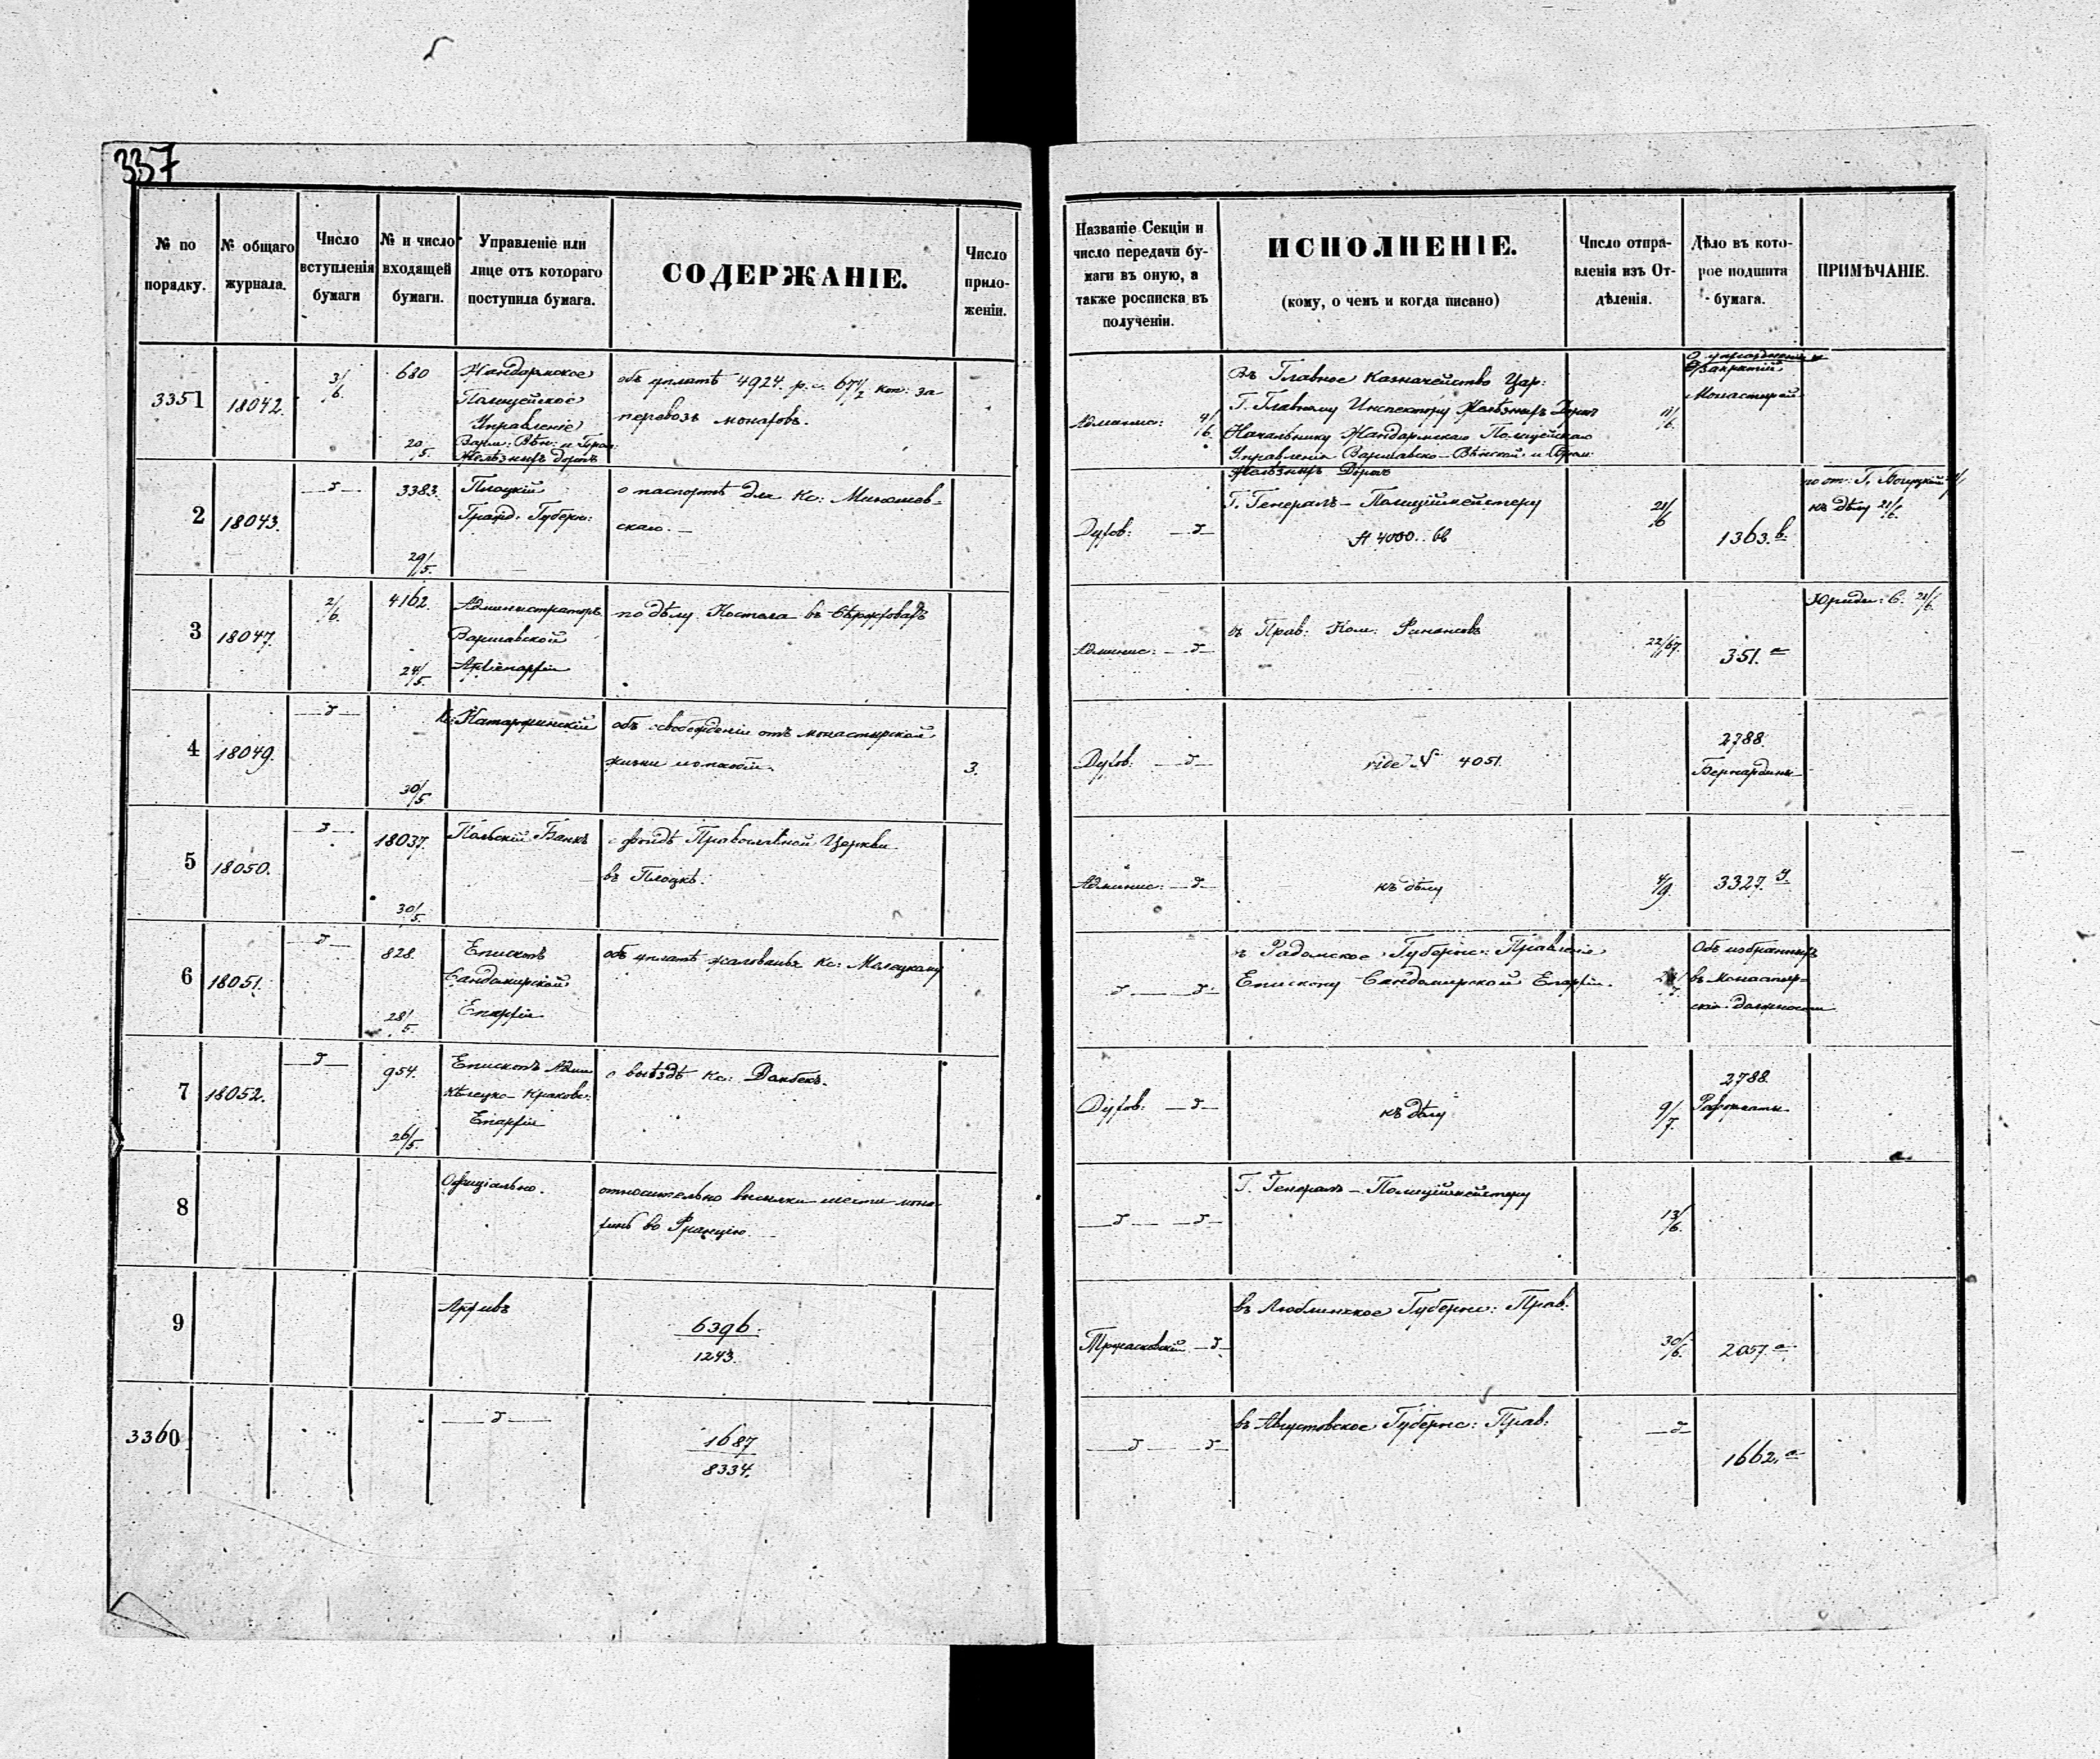 337
№ по
порядку.
№ общаго
журнала.
Число
вступленія
бумаги
№ и число
входящей
бумаги.
Управленіе или
лице отъ котораго
поступила бумага.
СОДЕРЖАНІЕ.
Число
прило-
женіи.
Названіе Секціи и
число передачи бу-
маги въ оную, а
также росписка въ
полученіи.
ИСПОЛНЕНІЕ.
(кому, о чемъ и когда писано)
Число отпра-
вленія изъ От-
дѣленія.
Дѣло въ кото-
рое подшита
бумага.
ПРИМѢЧАНІЕ.
3351
18042.
3/6.
680
20/5.
Жандармское
Полицейское
Управленіе
Варш: Вѣн: и
Желѣзныхъ дорогъ
объ уплатѣ 4924. р. с. 67½ коп: за
перевозъ монаховъ.
Админис: 4/6.
Въ Главное Казначейство Цар:
Г. Главному Инспектору Желѣзныхъ Дорогъ
Начальнику Жандармскаго Полицейскаго
Управленія Варшавско-Вѣнской и
Желѣзныхъ Дорогъ
11/6.
закрытіи
Монастырей
2
18043.
—д—
3383.
29/5.
Плоцкій
Гражд. Губерн:
о паспортѣ для Кс:
скаго. —
Духов: —д—
Г. Генералъ-Полиціймейстеру
№ 4000..66
21/6
1363.в.
къ дѣлу 21/6.
3
18047.
2/6.
4162.
24/5.
Администраторъ
Варшавской
Архіепархіи
по дѣлу Костела въ
Админис: —д—
въ Прав: Ком: Финансовъ
22/67.
351.а
Юриди: С. 21/6.
4
18049.
—д—
30/5
Кс: Катаржинскій
объ освобожденіи отъ монастырской
жизни
3.
Духов: —д—
vide № 4051.
2788.
Бернардины
5
18050.
—д—
18037.
30/5.
Польскій Банкъ
о фондѣ Православной Церкви
въ Плоцкѣ.
Админис: —д—
къ дѣлу
4/9.
3327.
6
18051.
—д—
828.
28/5.
Епископъ
Сандомирской
Епархіи
объ уплатѣ жалованья Кс: Молоцкому
—д— —д—
въ Радомское Губернс: Правленіе
Епископу Сандомирской Епархіи.
Объ избранныхъ
въ монастыр-
скія должности
7
18052.
—д—
954.
26/5.
Епископъ Адми
Кѣлецко-Краковс:
Епархіи
о выѣздѣ Кс: Домбекъ.
Духов: —д—
къ дѣлу
9/7.
2788.
Реформаты
8
Офиціально.
относительно высылки шести мона-
хинь во Францію.
—д— —д—
Г. Генералъ-Полиціймейстеру
13/6.
9
Архивъ
6396.
1243.
Тржасковскій —д—
въ Люблинское Губернс: Прав:
30/6.
2057.а
3360
—д—
1687
8334.
—д— —д—
въ Августовское Губернс: Прав:
—д—
1662.а